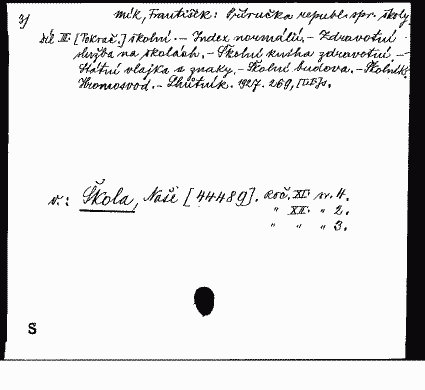 3/ Mík, František: Příručka republ. spr. školy
díl III: [Pokrač.] školní. — Index normálií. — Zdravotní
služba na školách. — Školní kniha zdravotní. —
Státní vlajka a znaky. — Školní budova. — Školník.
Hromosvod. — Slušník. 1927. 269, [VI] s.
v.: Škola, Naše [44489]. Roč. XI. sv. 4.
" XII. " 2.
" " " 3.
S